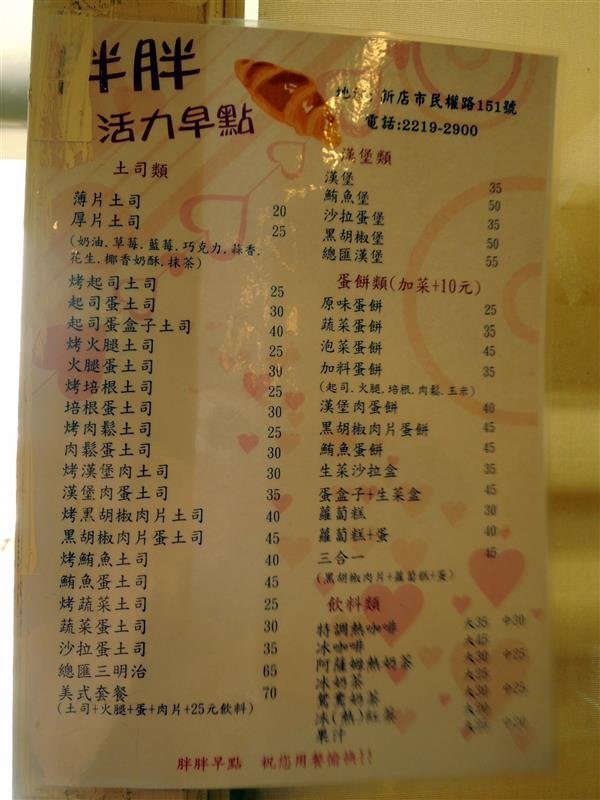 胖胖
活力早點
地址:新店市民權路151號
電話:2219-2900
土司類
薄片土司 20
厚片土司 25
(奶油.草莓.藍莓.巧克力.蒜香.
花生.椰香奶酥.抹茶)
烤起司土司 25
起司蛋土司 30
起司蛋盒子土司 40
烤火腿土司 25
火腿蛋土司 30
烤培根土司 25
培根蛋土司 30
烤肉鬆土司 25
肉鬆蛋土司 30
烤漢堡肉土司 30
漢堡肉蛋土司 35
烤黑胡椒肉片土司 40
黑胡椒肉片蛋土司 45
烤鮪魚土司 40
鮪魚蛋土司 45
烤蔬菜土司 25
蔬菜蛋土司 30
沙拉蛋土司 35
總匯三明治 65
美式套餐 70
(土司+火腿+蛋+肉片+25元飲料)
漢堡類
漢堡 35
鮪魚堡 50
沙拉蛋堡 35
黑胡椒堡 50
總匯漢堡 55
蛋餅類(加菜+10元)
原味蛋餅 25
蔬菜蛋餅 35
泡菜蛋餅 45
加料蛋餅 35
(起司.火腿.培根.肉鬆.玉米)
漢堡肉蛋餅 40
黑胡椒肉片蛋餅 45
鮪魚蛋餅 45
生菜沙拉盒 35
蛋盒子+生菜盒 45
蘿蔔糕 30
蘿蔔糕+蛋 40
三合一 45
(黑胡椒肉片+蘿蔔糕+蛋)
飲料類
特調熱咖啡 大35 中30
冰咖啡 大45
阿薩姆熱奶茶 大30 中25
冰奶茶 大30
鴛鴦奶茶 大30 中25
冰(熱)紅茶
果汁
胖胖早點 祝您用餐愉快!!